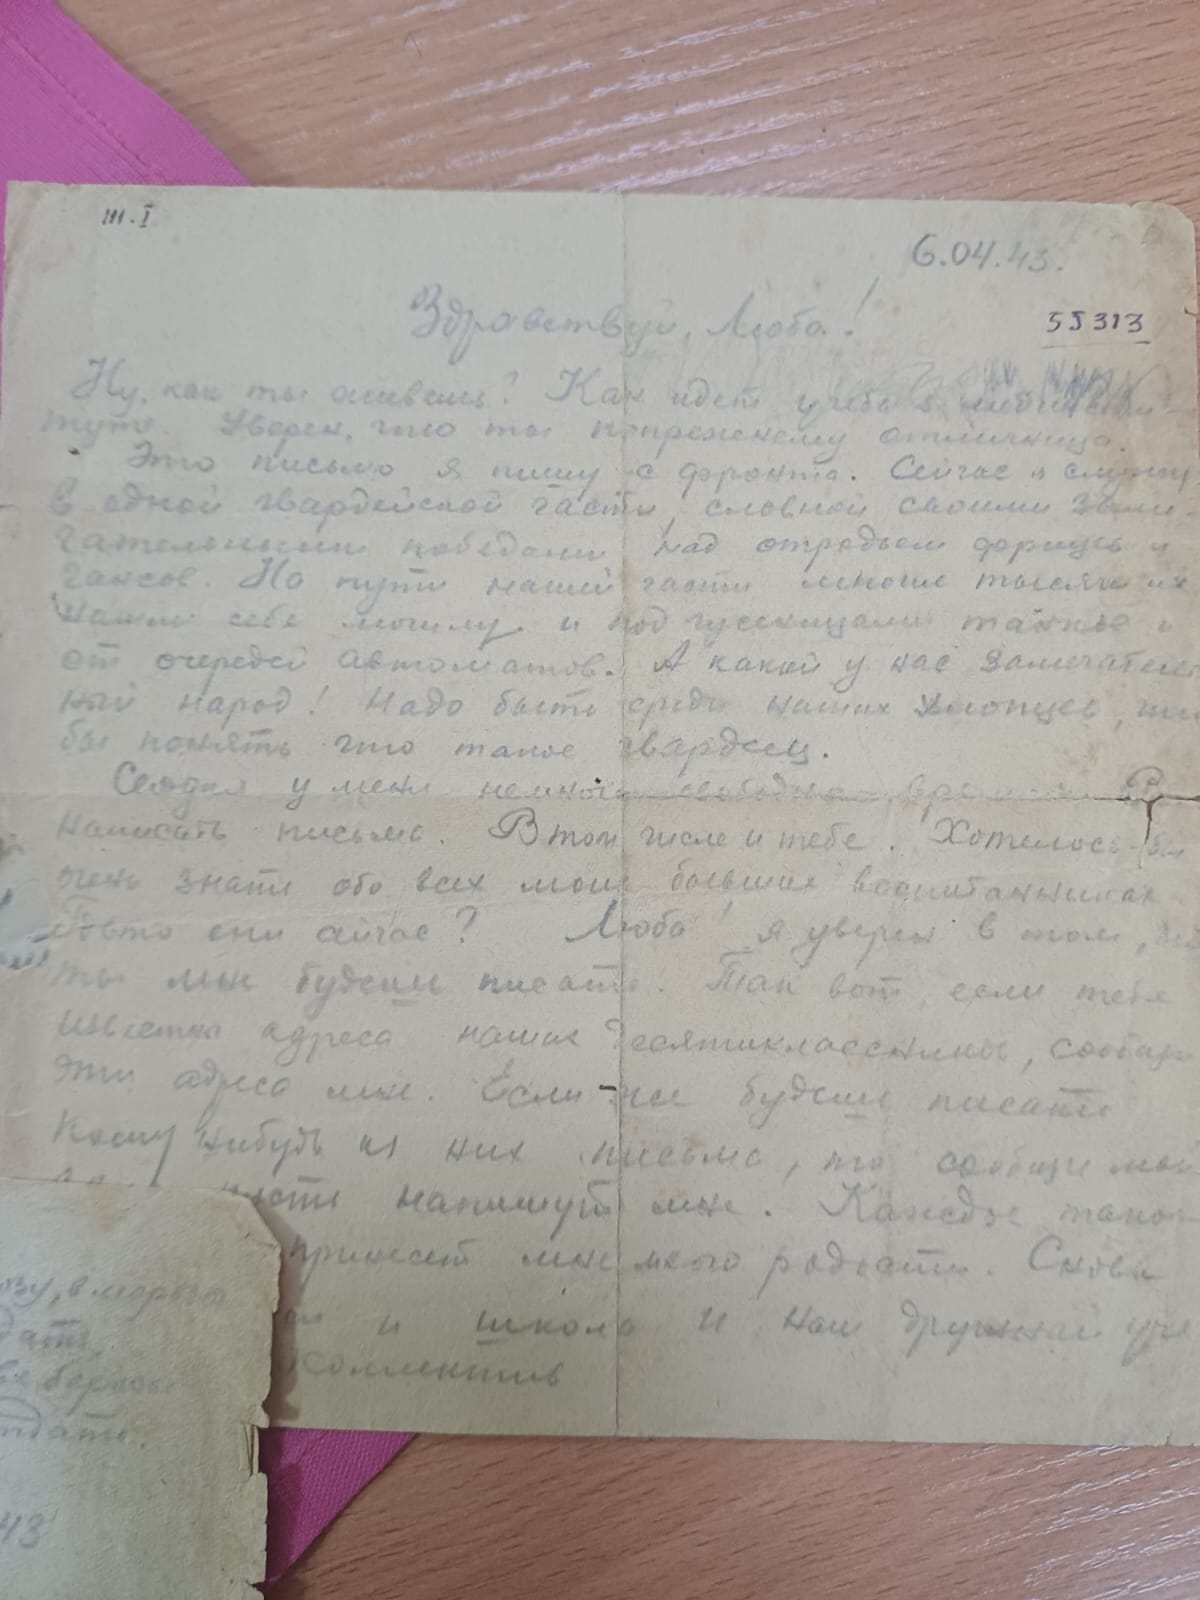 ш.I
6.04.43.
Здравствуй, Люба!
55313
Ну, как ты живешь? Как идет учеба в мединсти-
туте. Уверен, что ты попрежнему отличница.
Это письмо я пишу с фронта. Сейчас я служу
в одной гвардейской части, славной своими заме-
чательными победами над отродьем фрицев и
гансов. На пути нашей части многие тысячи их
нашли себе могилу и под гусеницами танков и
от очередей автоматов. А какой у нас замечатель
ный народ! Надо быть среди наших хлопцев, что
бы понять что такое гвардеец.
Сегодня у меня немного свободного времени
написать письма. В том числе и тебе. Хотелось бы
очень знать обо всех моих бывших воспитанниках.
они сейчас? Люба! я уверен в том, что
ты мне будешь писать. Так вот, если тебе
известны адреса наших десятиклассников, сообщи
эти адреса мне. Если же будешь писать
кому нибудь из них письма, то сообщи мой
пусть напишут мне. Каждое такое
принесет мне много радости. Снова
и школа и наш дружный
коллектив
в мороз
43